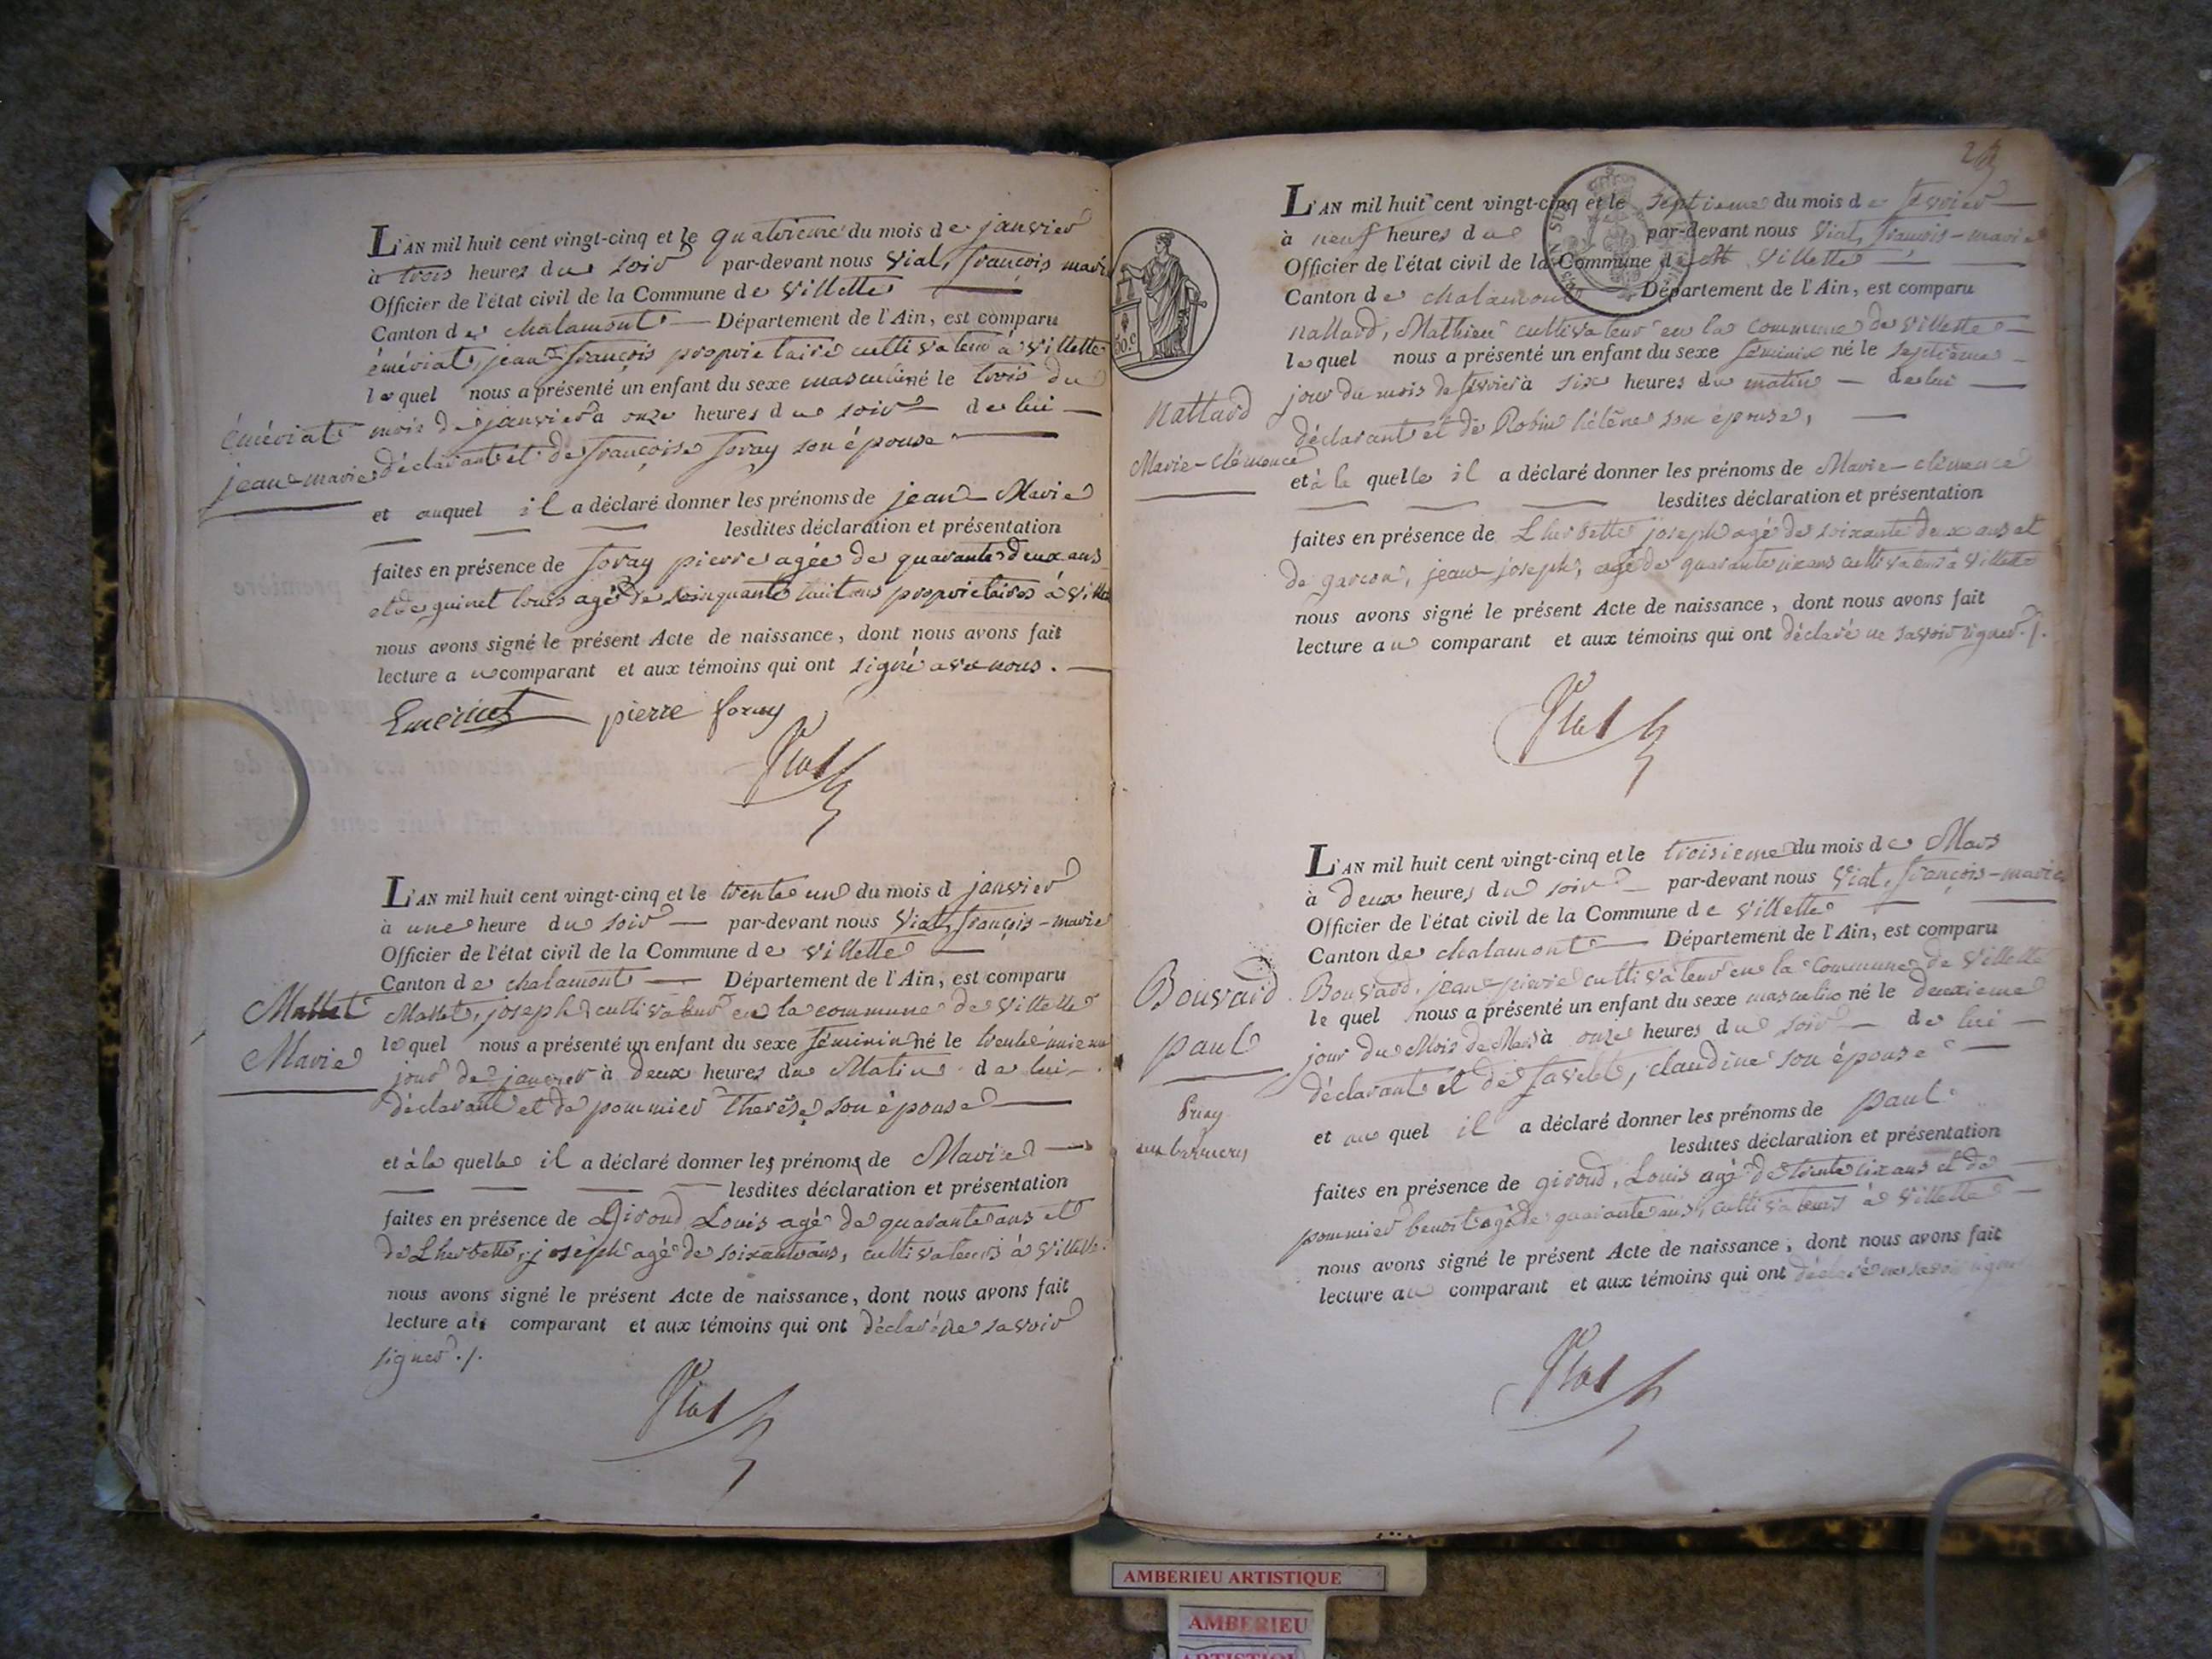 L'AN mil huit cent vingt-cinq et le quatrieme du mois de janvier
à trois heures du soir par-devant nous Vial, françois marie
Officier de l'état civil de la Commune de Villette
Canton de chalamont Département de l'Ain, est comparu
émériat, jean-françois proprietaire cultivateur à Villette
lequel nous a présenté un enfant du sexe masculin né le trois du
mois de janvier à onze heures du soir de lui
déclarant et de françoise foray son épouse
émériat
jean-marie
et auquel il a déclaré donner les prénoms de jean-Marie
lesdites déclaration et présentation
faites en présence de foray pierre agée de quarante deux ans
et de guinet louis agé de cinquante huit ans proprietaires à
nous avons signé le présent Acte de naissance, dont nous avons fait
lecture au comparant et aux témoins qui ont signé avec nous.
pierre foray
Vial
L'AN mil huit cent vingt-cinq et le trente un du mois d janvier
à une heure du soir par-devant nous Vial, françois-marie
Officier de l'état civil de la Commune de Villette
Canton de chalamont Département de l'Ain, est comparu
Mallet, joseph cultivateur en la commune de Villette
Mallet
Marie
lequel nous a présenté un enfant du sexe féminin né le
jour de janvier à deux heures du Matin de lui
déclarant et de pommier Therése, son épouse
et à la quelle il a déclaré donner les prénoms de Marie
lesdites déclaration et présentation
faites en présence de Giroud Louis agé de quarante ans et
de Lherbette, joseph agé de soixante ans, cultivateurs à Villette.
nous avons signé le présent Acte de naissance, dont nous avons fait
lecture au comparant et aux témoins qui ont déclaré ne savoir
signer./.
Vial
L'AN mil huit cent vingt-cinq et le septieme du mois de fevrier
à neuf heures du par-devant nous Vial, françois-marie
Officier de l'état civil de la Commune de Villette
Canton de chalamont Département de l'Ain, est comparu
nallard, Mathieu cultivateur en la Commune de Villette
lequel nous a présenté un enfant du sexe féminin né le septième
jour du mois de fevrier à six heures du matin de lui
déclarant et de Robin héléne son épouse,
50.c
nallard
Marie-clémence
et à la quelle il a déclaré donner les prénoms de Marie-clémence
lesdites déclaration et présentation
faites en présence de Lherbette joseph agé de soixante deux ans et
de garcon, jean-joseph, agé de quarante six ans cultivateurs à Villette
nous avons signé le présent Acte de naissance, dont nous avons fait
lecture au comparant et aux témoins qui ont déclaré ne savoir signer./.
Vial
L'AN mil huit cent vingt-cinq et le troisieme du mois de Mars
à deux heures du soir par-devant nous Vial, françois-marie
Officier de l'état civil de la Commune de Villette
Canton de chalamont Département de l'Ain, est comparu
Bouvard, jean-pierre cultivateur en la Commune de Villette
le quel nous a présenté un enfant du sexe masculin né le deuxieme
jour du Mois de Mars à onze heures du soir de lui
déclarant et de claudine son épouse
Bouvard
paul
et au quel il a déclaré donner les prénoms de paul
lesdites déclaration et présentation
faites en présence de giroud, Louis agé de trente six ans et de
pommier benoit agé de quarante ans, cultivateurs à Villette
nous avons signé le présent Acte de naissance, dont nous avons fait
lecture au comparant et aux témoins qui ont déclaré ne savoir signer
Vial
AMBERIEU ARTISTIQUE
AMBERIEU
ARTISTIQUE